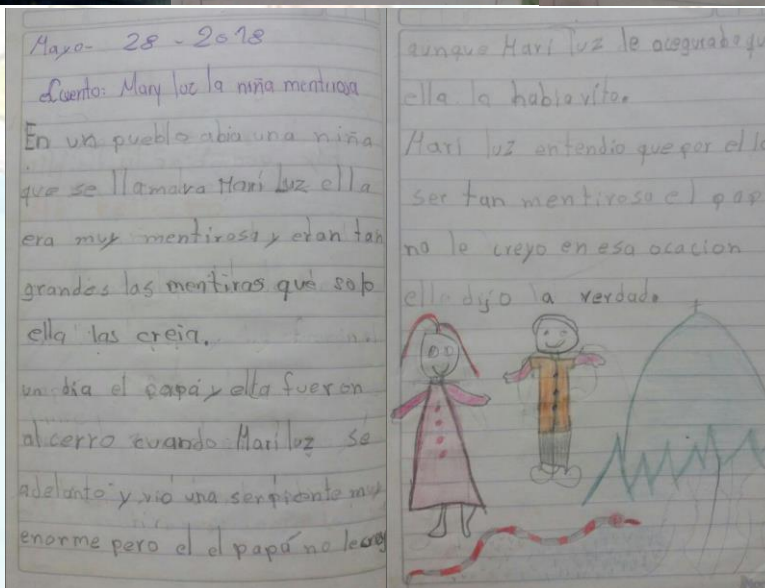 Mayo- 28 - 2018
Cuento: Mary loz la niña mentirosa
En un pueblo abia una niña
que se llamava Mari Luz ella
era muy mentirosa y eran tan
grandes las mentiras que solo
ella las creia.
un dia el papá y ella fueron
al cerro cuando Mari luz se
adelanto y vió una serpiente muy
enorme pero el el papá no le creyo
aunque Mari luz le aseguraba qu
ella la habia vito.
Mari luz entendio que por ello
ser tan mentirosa el pap
no le creyo en esa ocacion
ella dijo la verdad.